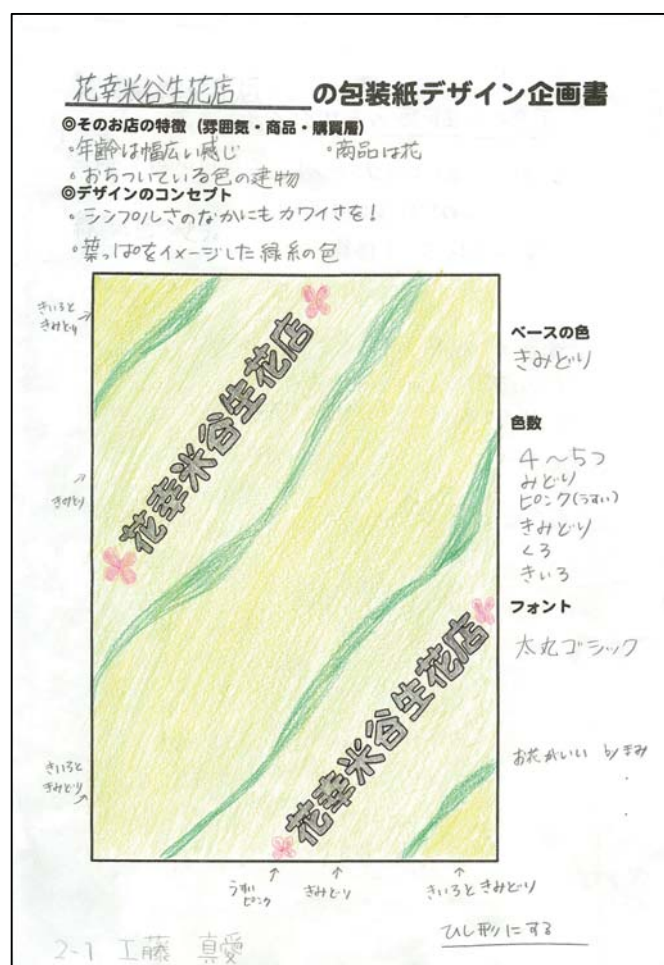 花幸米谷生花店の包装紙デザイン企画書
◎そのお店の特徴（雰囲気・商品・購買層）
・年齢は幅広い感じ ・商品は花
・おちついている色の建物
◎デザインのコンセプト
・シンプルさのなかにもカワイさを！
・葉っぱをイメージした緑系の色
きいろと
きみどり
きみどり
きいろと
きみどり
花幸米谷生花店
花幸米谷生花店
ベースの色
きみどり
色数
4〜5つ
みどり
ピンク(うすい)
きみどり
くろ
きいろ
フォント
太丸ゴシック
お花がいい by きみ
うすい
ピンク
きみどり
きいろときみどり
ひし形にする
2-1 工藤 真愛